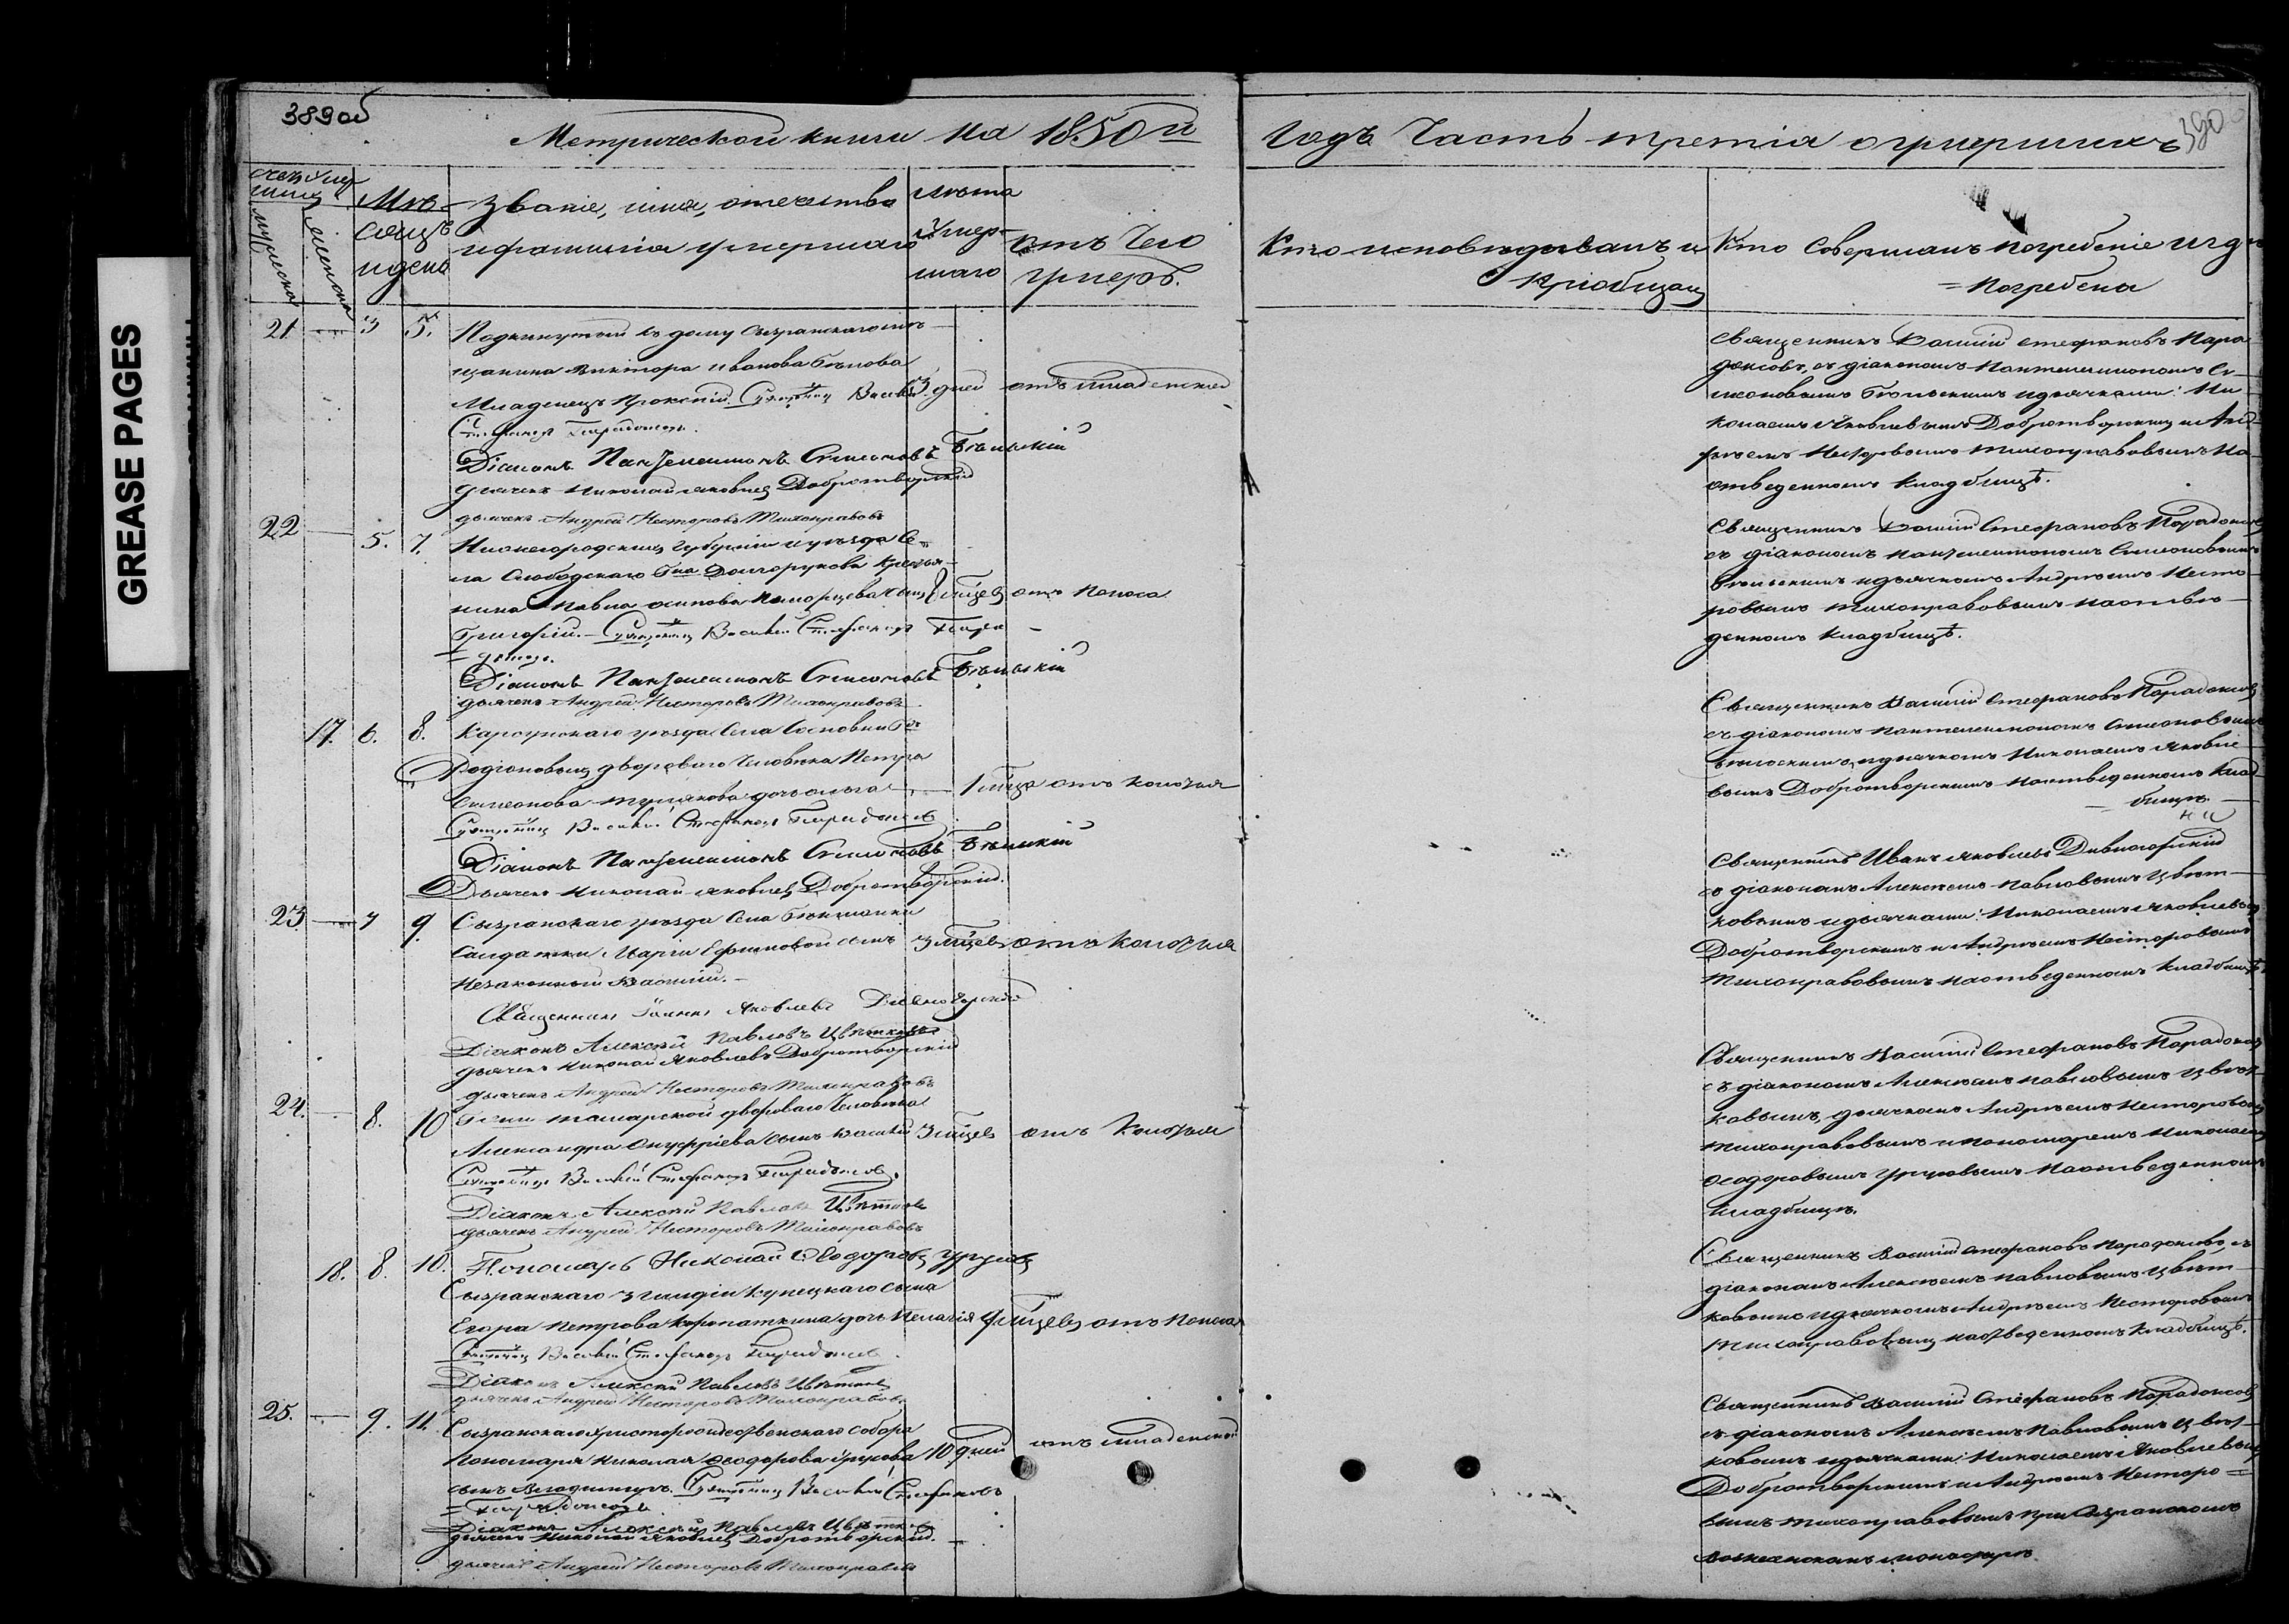 GREASE PAGES
389об
390
Метрической книги на 1850й
Годъ Часть третія о умершихъ
Счетъ умер
шихъ
мужеска
женска
Мѣ-
сяцъ
и день
Званіе, имя, отечество
и фамилія умершаго
лѣта
умер-
шаго
отъ чего
умеръ.
Кто исповѣдывалъ и
пріобщалъ
Кто совершалъ погребеніе и гдѣ
погребены
21 3 5.
Подкинутый къ дому Сызранскаго мѣ-
щанина Виктора Иванова Бѣлова
Младенецъ Прокопій. Священникъ Василій 3 дней отъ младенской
Стефановъ Парадоксовъ.
Діаконъ Пантелеимонъ Симеоновъ Бѣльскій
дьячекъ Николай Яковлевъ Добротворскій
дьячекъ Андрей Несторовъ Тихонравовъ
Священникъ Василій Стефановъ Пара
доксовъ, съ діакономъ Пантелеимономъ Си-
меоновымъ Бѣльскимъ и дьячками: Ни
колаемъ Яковлевымъ Добротворскимъ и Анд-
реемъ Несторовымъ Тихонравовымъ на
отведенномъ кладбищѣ.
22 5. 7.
Нижегородской Губерніи и уѣзда Се-
ла Слободскаго Гна Долгорукова крестья-
нина Павла Осипова сынъ 8 мѣсяцевъ отъ поноса
Григорій. Священникъ Василій Стефановъ Пара
=доксовъ.
Діаконъ Пантелеимонъ Симеоновъ Бѣльскій
дьячекъ Андрей Несторовъ Тихонравовъ
Священникъ Василій Стефановъ Парадоксовъ
съ діакономъ Пантелеимономъ Симеоновымъ
Бѣльскимъ и дьячкомъ Андреемъ Несто
ровымъ Тихонравовымъ на отве
денномъ кладбищѣ.
17. 6. 8.
Карсунскаго уѣзда Села Сосновки Гг
Родіоновыхъ двороваго человѣка Петра
Симеонова дочь Ольга 1 мѣсяца отъ колотья
Священникъ Василій Стефановъ Парадоксовъ
Діаконъ Пантелеимонъ Симеоновъ Бѣльскій
Дьячекъ Николай Яковлевъ Добротворскій.
Священникъ Василій Стефановъ Парадоксовъ
съ діакономъ Пантелеимономъ Симеоновымъ
Бѣльскимъ и дьячкомъ Николаемъ Яковле
вымъ Добротворскимъ на отведенномъ клад
бищѣ.
23 7 9
Сызранскаго уѣзда Села
Салдатки Маріи Ефимовой сынъ 3 мѣсяцевъ отъ колотья
незаконный Василій.
Священникъ Іоаннъ Яковлевъ Дивногорскій
Діаконъ Алексѣй Павловъ Цвѣтковъ
дьячекъ Николай Яковлевъ Добротворскій
дьячекъ Андрей Несторовъ Тихонравовъ
Священникъ Иванъ Яковлевъ Дивногорскій
съ діакономъ Алексѣемъ Павловымъ Цвѣт
ковымъ и дьячками: Николаемъ Яковлевымъ
Добротворскимъ и Андреемъ Несторовымъ
Тихонравовымъ на отведенномъ кладбищѣ
24. 8. 10
двороваго человѣка
Александра Онуфріева сынъ Василій 3 мѣсяцевъ отъ колотья
Священникъ Василій Стефановъ Парадоксовъ.
Діаконъ Алексѣй Павловъ Цвѣтковъ
дьячекъ Андрей Несторовъ Тихонравовъ
Пономарь Николай Ѳеодоровъ Урусовъ
Священникъ Василій Стефановъ Парадоксовъ
съ діакономъ Алексѣемъ Павловымъ Цвѣт
ковымъ, дьячкомъ Андреемъ Несторовымъ
Тихонравовымъ и пономаремъ Николаемъ
Ѳеодоровымъ Урусовымъ на отведенномъ
кладбищѣ.
18. 8. 10.
Сызранскаго 3 гильдіи купецкаго сына
Егора Петрова дочь Пелагія 9 мѣсяцевъ отъ поноса
Священникъ Василій Стефановъ Парадоксовъ.
Діаконъ Алексѣй Павловъ Цвѣтковъ
дьячекъ Андрей Несторовъ Тихонравовъ
Священникъ Василій Стефановъ Парадоксовъ, съ
діакономъ Алексѣемъ Павловымъ Цвѣт
ковымъ и дьячкомъ Андреемъ Несторовымъ
Тихонравовымъ на отведенномъ кладбищѣ.
25. 9. 11.
Сызранскаго Христорождественскаго собора
Пономаря Николая Ѳеодорова Урусова 10 дней отъ младенской
сынъ Владимиръ. Священникъ Василій Стефановъ
=Парадоксовъ
Діаконъ Алексѣй Павловъ Цвѣтковъ
дьячекъ Николай Яковлевъ Добротворскій.
дьячекъ Андрей Несторовъ Тихонравовъ
Священникъ Василій Стефановъ Парадоксовъ
съ діакономъ Алексѣемъ Павловымъ Цвѣт
ковымъ и дьячками: Николаемъ Яковлевымъ
Добротворскимъ и Андреемъ Несторо=
вымъ Тихонравовымъ при Сызранскомъ
Вознесенскомъ монастырѣ.